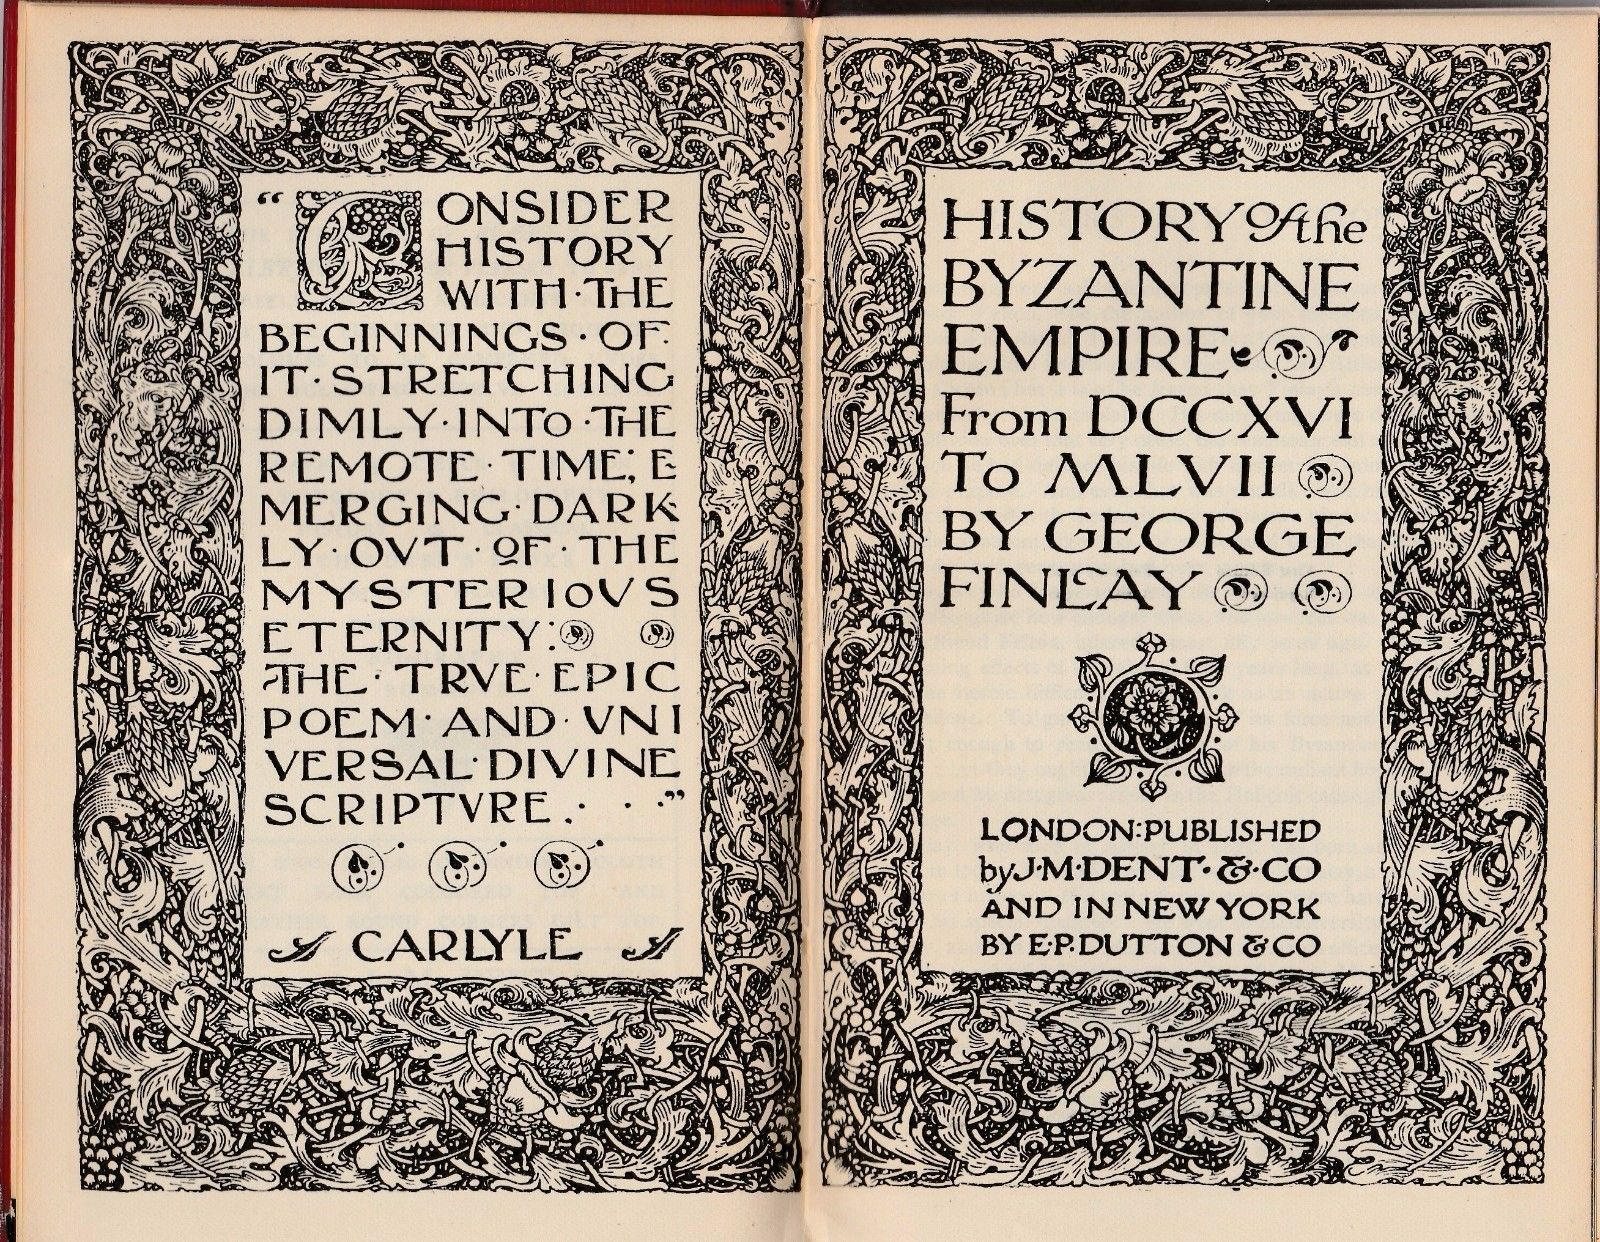 “CONSIDER
HISTORY
WITH·THE
BEGINNINGS·OF·
IT·STRETCHING
DIMLY·INTO·THE
REMOTE·TIME; E
MERGING·DARK
LY·OVT·OF·THE
MYSTERIOVS
ETERNITY:
THE·TRVE·EPIC
POEM·AND·VNI
VERSAL·DIVINE
SCRIPTVRE. · ·”
CARLYLE
HISTORY of the
BYZANTINE
EMPIRE
From DCCXVI
To MLVII
BY GEORGE
FINLAY
LONDON:PUBLISHED
by J·M·DENT·&·CO
AND IN NEW YORK
BY E·P·DUTTON & CO